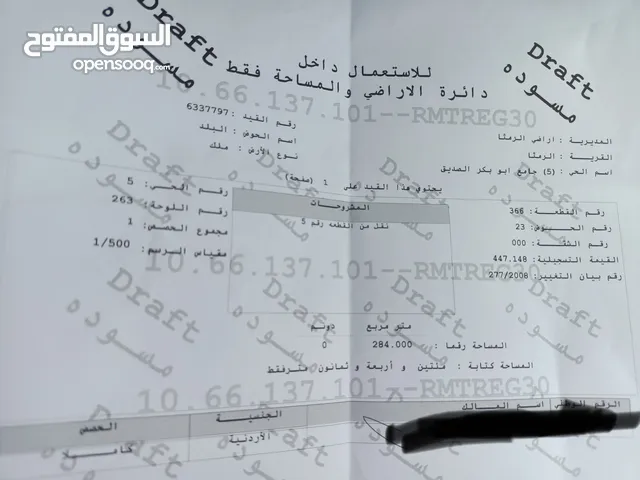 السوق المفتوح
opensooq.com
للاستعمال داخل
دائرة الاراضي والمساحة فقط
Draft
مسوده
Draft
مسوده
10.66.137.101--RMTREG30
المديرية : اراضي الرمثا
القرية : الرمثا
اسم الحي : (5) جامع ابو بكر الصديق
رقم القيد : 6337797
اسم الحوض : البلد
نوع الأرض : ملك
يحتوي هذا القيد على 1 (صفحة)
رقم القطعة : 366
رقم الحوض : 23
رقم الشقة : 000
القيمة التسجيلية : 447.148
رقم بيان التغيير : 277/2008
المشروحات
نقل من القطعه رقم 5
رقم الحي: 5
رقم اللوحة: 263
مجموع الحصص: 1
مقياس الرسم: 1/500
Draft
مسوده
Draft
مسوده
Draft
مسوده
10.66.137.101--RMTREG30
متر مربع
دونم
المساحة رقما : 284.000 0
المساحة كتابة : مئتين و أربعة و ثمانون مترفقط
Draft
مسوده
Draft
مسوده
Draft
مسوده
10.66.137.101--RMTREG30
الرقم الوطني
اسم المالك
الجنسية
الحصص
الأردنية
كاملا
Draft
مسوده
Draft
مسوده
Draft
مسوده